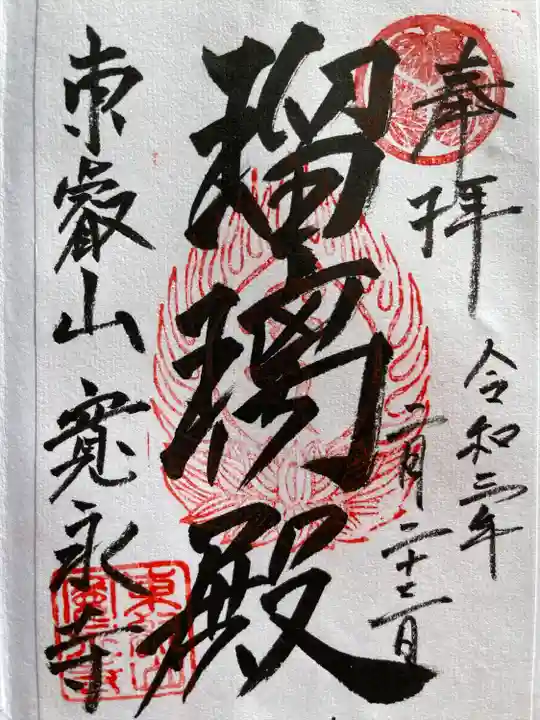 奉拝
令和三年
二月二十三日
瑠璃殿
東叡山 寛永寺